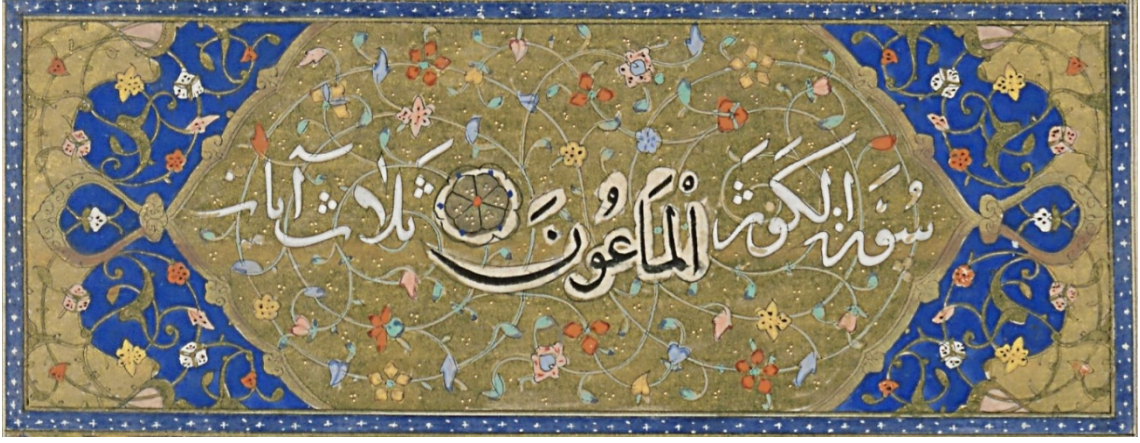 سُورَة الكَوثَر الْمَاعُونَ ثَلَاث آيات